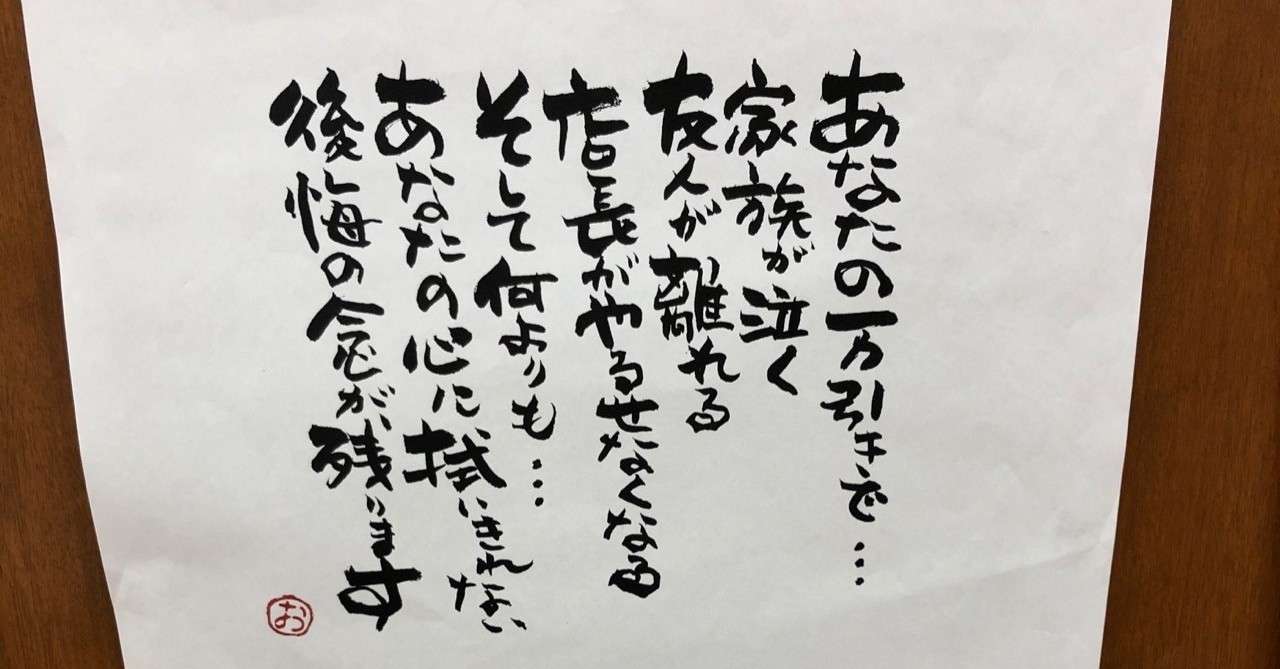 あなたの万引きで…
家族が泣く
友人が離れる
店長がやるせなくなる
そして何よりも…
あなたの心に、拭いきれない
後悔の念が、残ります
お